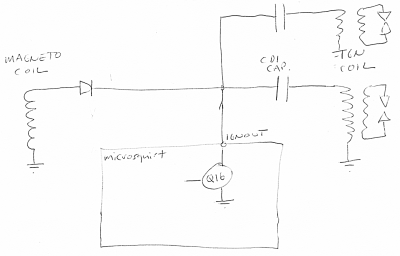 MAGNETO
COIL
CDI
CAP.
IGN
COIL
IGNOUT
microsquirt
Q16